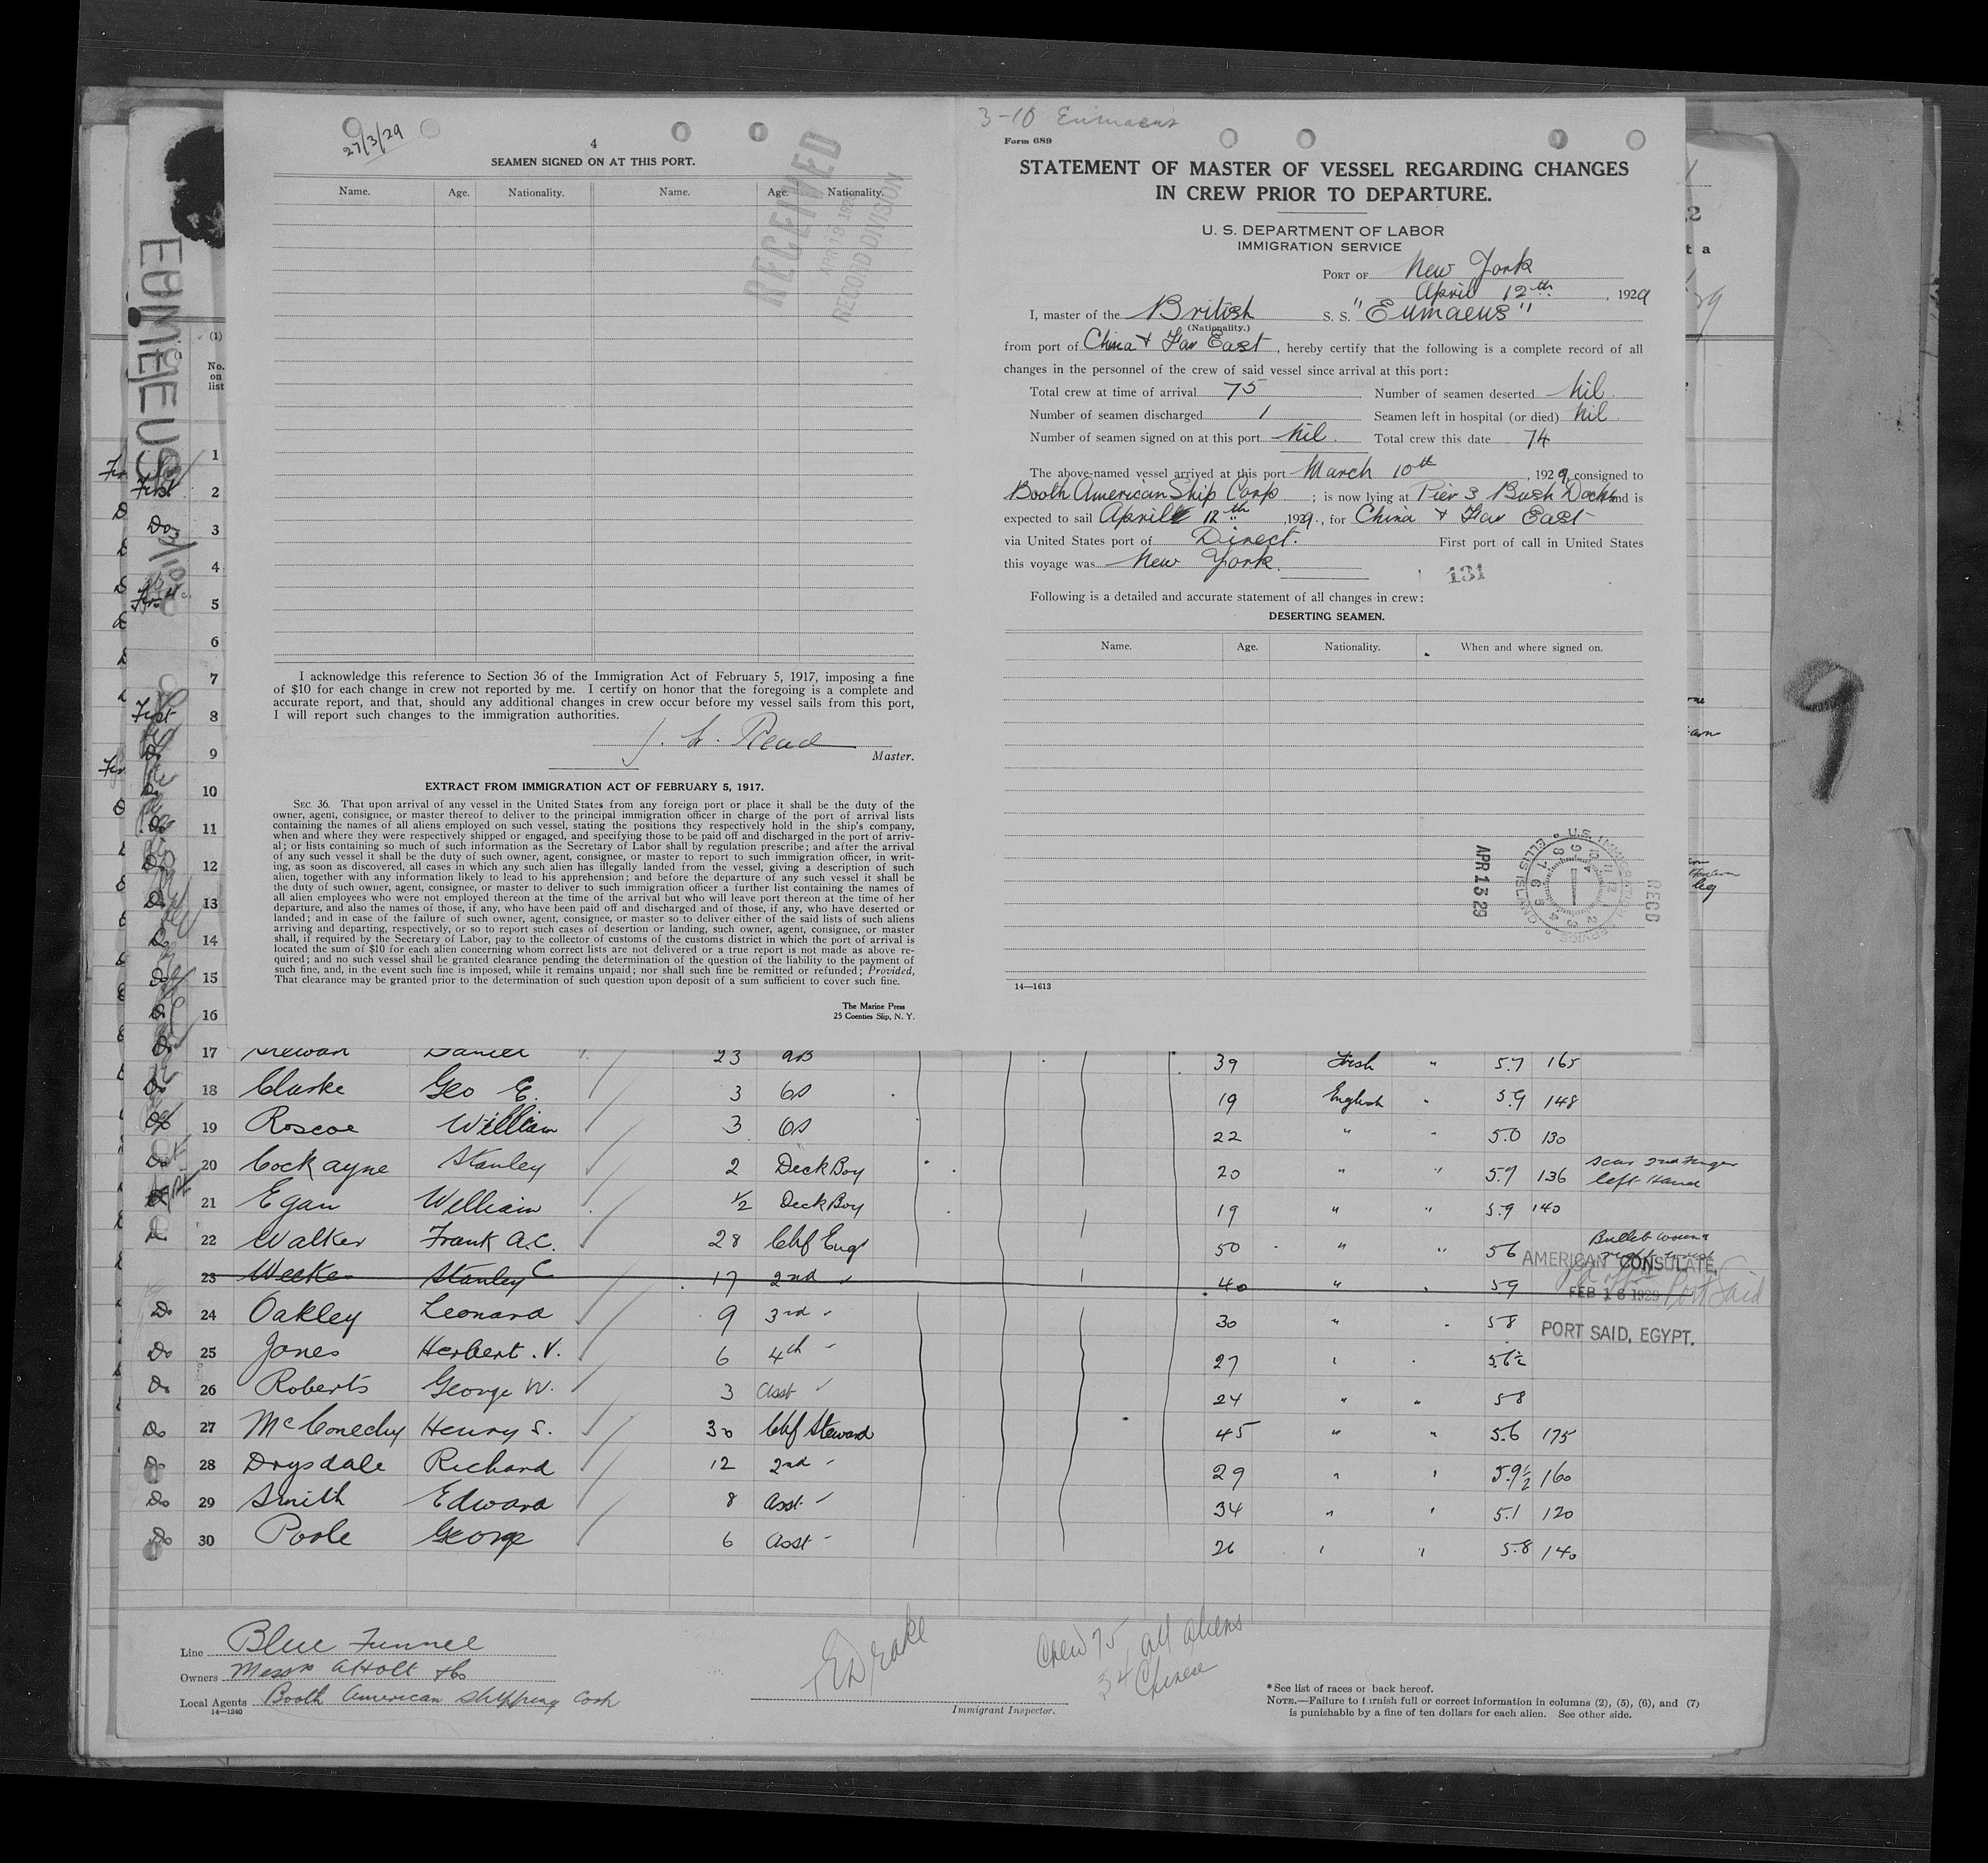 27/3/29
4
SEAMEN SIGNED ON AT THIS PORT.
Name. Age. Nationality. Name. Age. Nationality.
RECEIVED
APR 13 1929
RECORD DIVISION
I acknowledge this reference to Section 36 of the Immigration Act of February 5, 1917, imposing a fine
of $10 for each change in crew not reported by me. I certify on honor that the foregoing is a complete and
accurate report, and that, should any additional changes in crew occur before my vessel sails from this port,
I will report such changes to the immigration authorities.
Read
Master.
EXTRACT FROM IMMIGRATION ACT OF FEBRUARY 5, 1917.
SEC. 36. That upon arrival of any vessel in the United States from any foreign port or place it shall be the duty of the
owner, agent, consignee, or master thereof to deliver to the principal immigration officer in charge of the port of arrival lists
containing the names of all aliens employed on such vessel, stating the positions they respectively hold in the ship's company,
when and where they were respectively shipped or engaged, and specifying those to be paid off and discharged in the port of arriv-
al; or lists containing so much of such information as the Secretary of Labor shall by regulation prescribe; and after the arrival
of any such vessel it shall be the duty of such owner, agent, consignee, or master to report to such immigration officer, in writ-
ing, as soon as discovered, all cases in which any such alien has illegally landed from the vessel, giving a description of such
alien, together with any information likely to lead to his apprehension; and before the departure of any such vessel it shall be
the duty of such owner, agent, consignee, or master to deliver to such immigration officer a further list containing the names of
all alien employees who were not employed thereon at the time of the arrival but who will leave port thereon at the time of her
departure, and also the names of those, if any, who have been paid off and discharged and of those, if any, who have deserted or
landed; and in case of the failure of such owner, agent, consignee, or master so to deliver either of the said lists of such aliens
arriving and departing, respectively, or so to report such cases of desertion or landing, such owner, agent, consignee, or master
shall, if required by the Secretary of Labor, pay to the collector of customs of the customs district in which the port of arrival is
located the sum of $10 for each alien concerning whom correct lists are not delivered or a true report is not made as above re-
quired; and no such vessel shall be granted clearance pending the determination of the question of the liability to the payment of
such fine, and, in the event such fine is imposed, while it remains unpaid; nor shall such fine be remitted or refunded; Provided,
That clearance may be granted prior to the determination of such question upon deposit of a sum sufficient to cover such fine.
The Marine Press
25 Coenties Slip, N. Y.
3-10 Eumaeus
Form 689
STATEMENT OF MASTER OF VESSEL REGARDING CHANGES
IN CREW PRIOR TO DEPARTURE.
U. S. DEPARTMENT OF LABOR
IMMIGRATION SERVICE
PORT OF New York
April 12th, 1929
I, master of the British S. S. "Eumaeus"
(Nationality.)
from port of China & Far East, hereby certify that the following is a complete record of all
changes in the personnel of the crew of said vessel since arrival at this port:
Total crew at time of arrival 75 Number of seamen deserted Nil
Number of seamen discharged 1 Seamen left in hospital (or died) Nil
Number of seamen signed on at this port Nil. Total crew this date 74
The above-named vessel arrived at this port March 10th, 1929, consigned to
Booth American Ship Corp; is now lying at Pier 3 Bush Docks and is
expected to sail April 12th, 1929., for China & Far East
via United States port of Direct. First port of call in United States
this voyage was New York.
131
Following is a detailed and accurate statement of all changes in crew:
DESERTING SEAMEN.
Name. Age. Nationality. When and where signed on.
APR 13 29
U.S. IMMIGRATION SERVICE ELLIS ISLAND
REC'D
14—1613
9
EUMAEUS
(1)
No. on list
1
First 2
Do 3
4
5
6
7
First 8
Do 9
Do 10
Do 11
Do 12
Do 13
Do 14
Do 15
Do 16
Do 17 Daniel 23 AB 39 Irish " 5.7 165
Do 18 Clarke Geo E. 3 OS 19 English " 5.9 148
Do 19 Roscoe William 3 OS 22 " " 5.0 130
Do 20 Cockayne Stanley 2 Deck Boy 20 " " 5.7 136 Scar 2nd finger left Hand
Do 21 Egan William ½ Deck Boy 19 " " 5.9 140
Do 22 Walker Frank A.C. 28 Chf Engr 50 " " 56 Bullet wound
23 Weekes Stanley C 17 2nd " 40 " " 59
AMERICAN CONSULATE,
FEB 16 1929 Port Said
PORT SAID, EGYPT.
Do 24 Oakley Leonard 9 3rd " 30 " " 58
Do 25 Jones Herbert. V. 6 4th " 27 " " 5.6½
Do 26 Roberts George W. 3 Asst " 24 " " 58
Do 27 McConechy Henry S. 30 Chf Steward 45 " " 5.6 175
Do 28 Drysdale Richard 12 2nd " 29 " " 5.9½ 160
Do 29 Smith Edward 8 Asst. " 34 " " 5.1 120
Do 30 Poole George 6 Asst " 26 " " 5.8 140
Line Blue Funnel
Owners Messrs A Holt & Co
Local Agents Booth American Shipping Corp
14—1240
E Drake
Immigrant Inspector.
Crew 75 all aliens
34 Chinese
* See list of races on back hereof.
NOTE.—Failure to furnish full or correct information in columns (2), (5), (6), and (7)
is punishable by a fine of ten dollars for each alien. See other side.